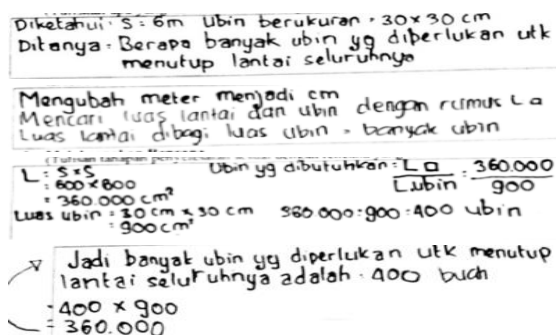 Diketahui : S : 6m Ubin berukuran : 30 x 30 cm
Ditanya : Berapa banyak ubin yg diperlukan utk
menutup lantai seluruhnya
Mengubah meter menjadi cm
Mencari luas lantai dan ubin dengan rumus L □
Luas lantai dibagi luas ubin = banyak ubin
(Tuliskan tahapan
L : S x S
: 600 x 600
= 360.000 cm²
Luas ubin : 30 cm x 30 cm
: 900 cm²
Ubin yg dibutuhkan : L □ / L ubin : 360.000 / 900
360.000 : 900 : 400 ubin
Jadi banyak ubin yg diperlukan utk menutup
lantai seluruhnya adalah : 400 buah
- 400 x 900
= 360.000